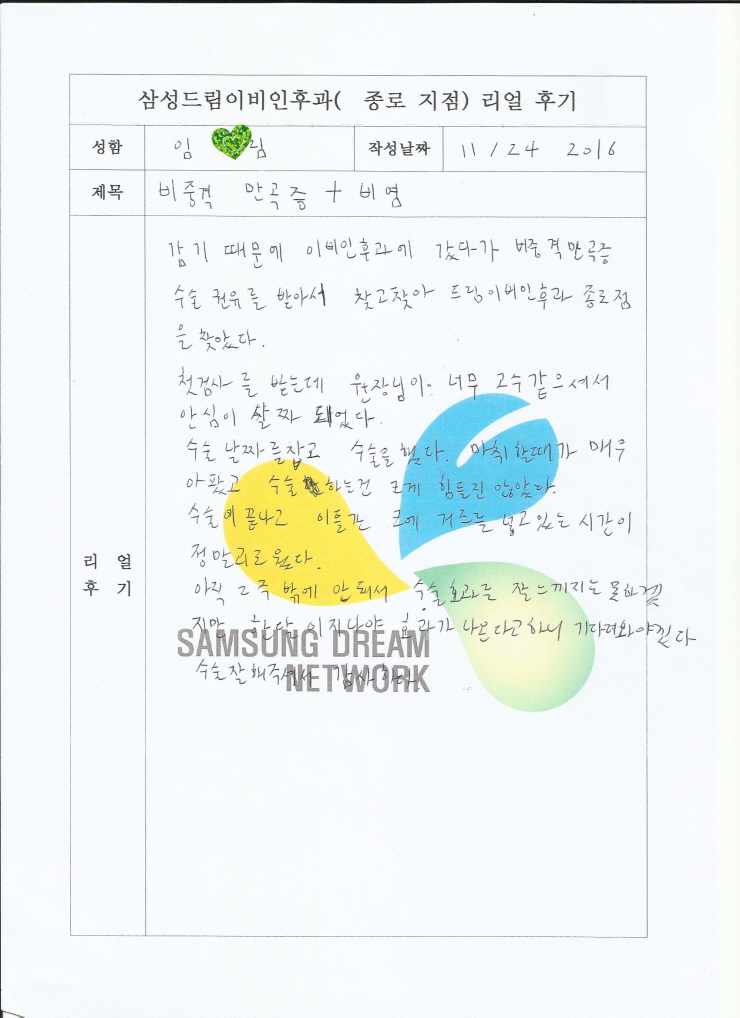 삼성드림이비인후과( 종로 지점) 리얼 후기
성함 임 림 작성날짜 11/24 2016
제목 비중격 만곡증 + 비염
감기 때문에 이비인후과에 갔다가 비중격만곡증
수술 권유를 받아서 찾고찾아 드림이비인후과 종로점
을 찾았다.
첫검사를 받는데 원장님이 너무 고수같으셔서
안심이 살짜 돼었다.
수술 날짜를잡고 수술을했다. 마취할때가 매우
아팠고 수술 하는건 크게 힘들진 않았다.
수술이 끝나고 이틀간 코에 거즈를 넣고있는 시간이
정말괴로웠다.
리 얼
후 기
아직 2주 밖에 안돼서 수술효과를 잘느끼지는 못하겠
지만 한달이지나야 효과가 나온다고하니 기다려와야겠다
SAMSUNG DREAM
NETWORK
수술잘해주셔서 감사하다